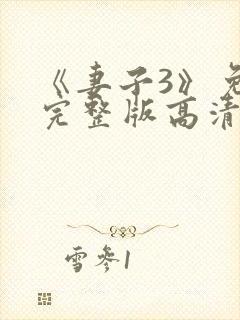 《妻子3》免
完整版高清
雪参1